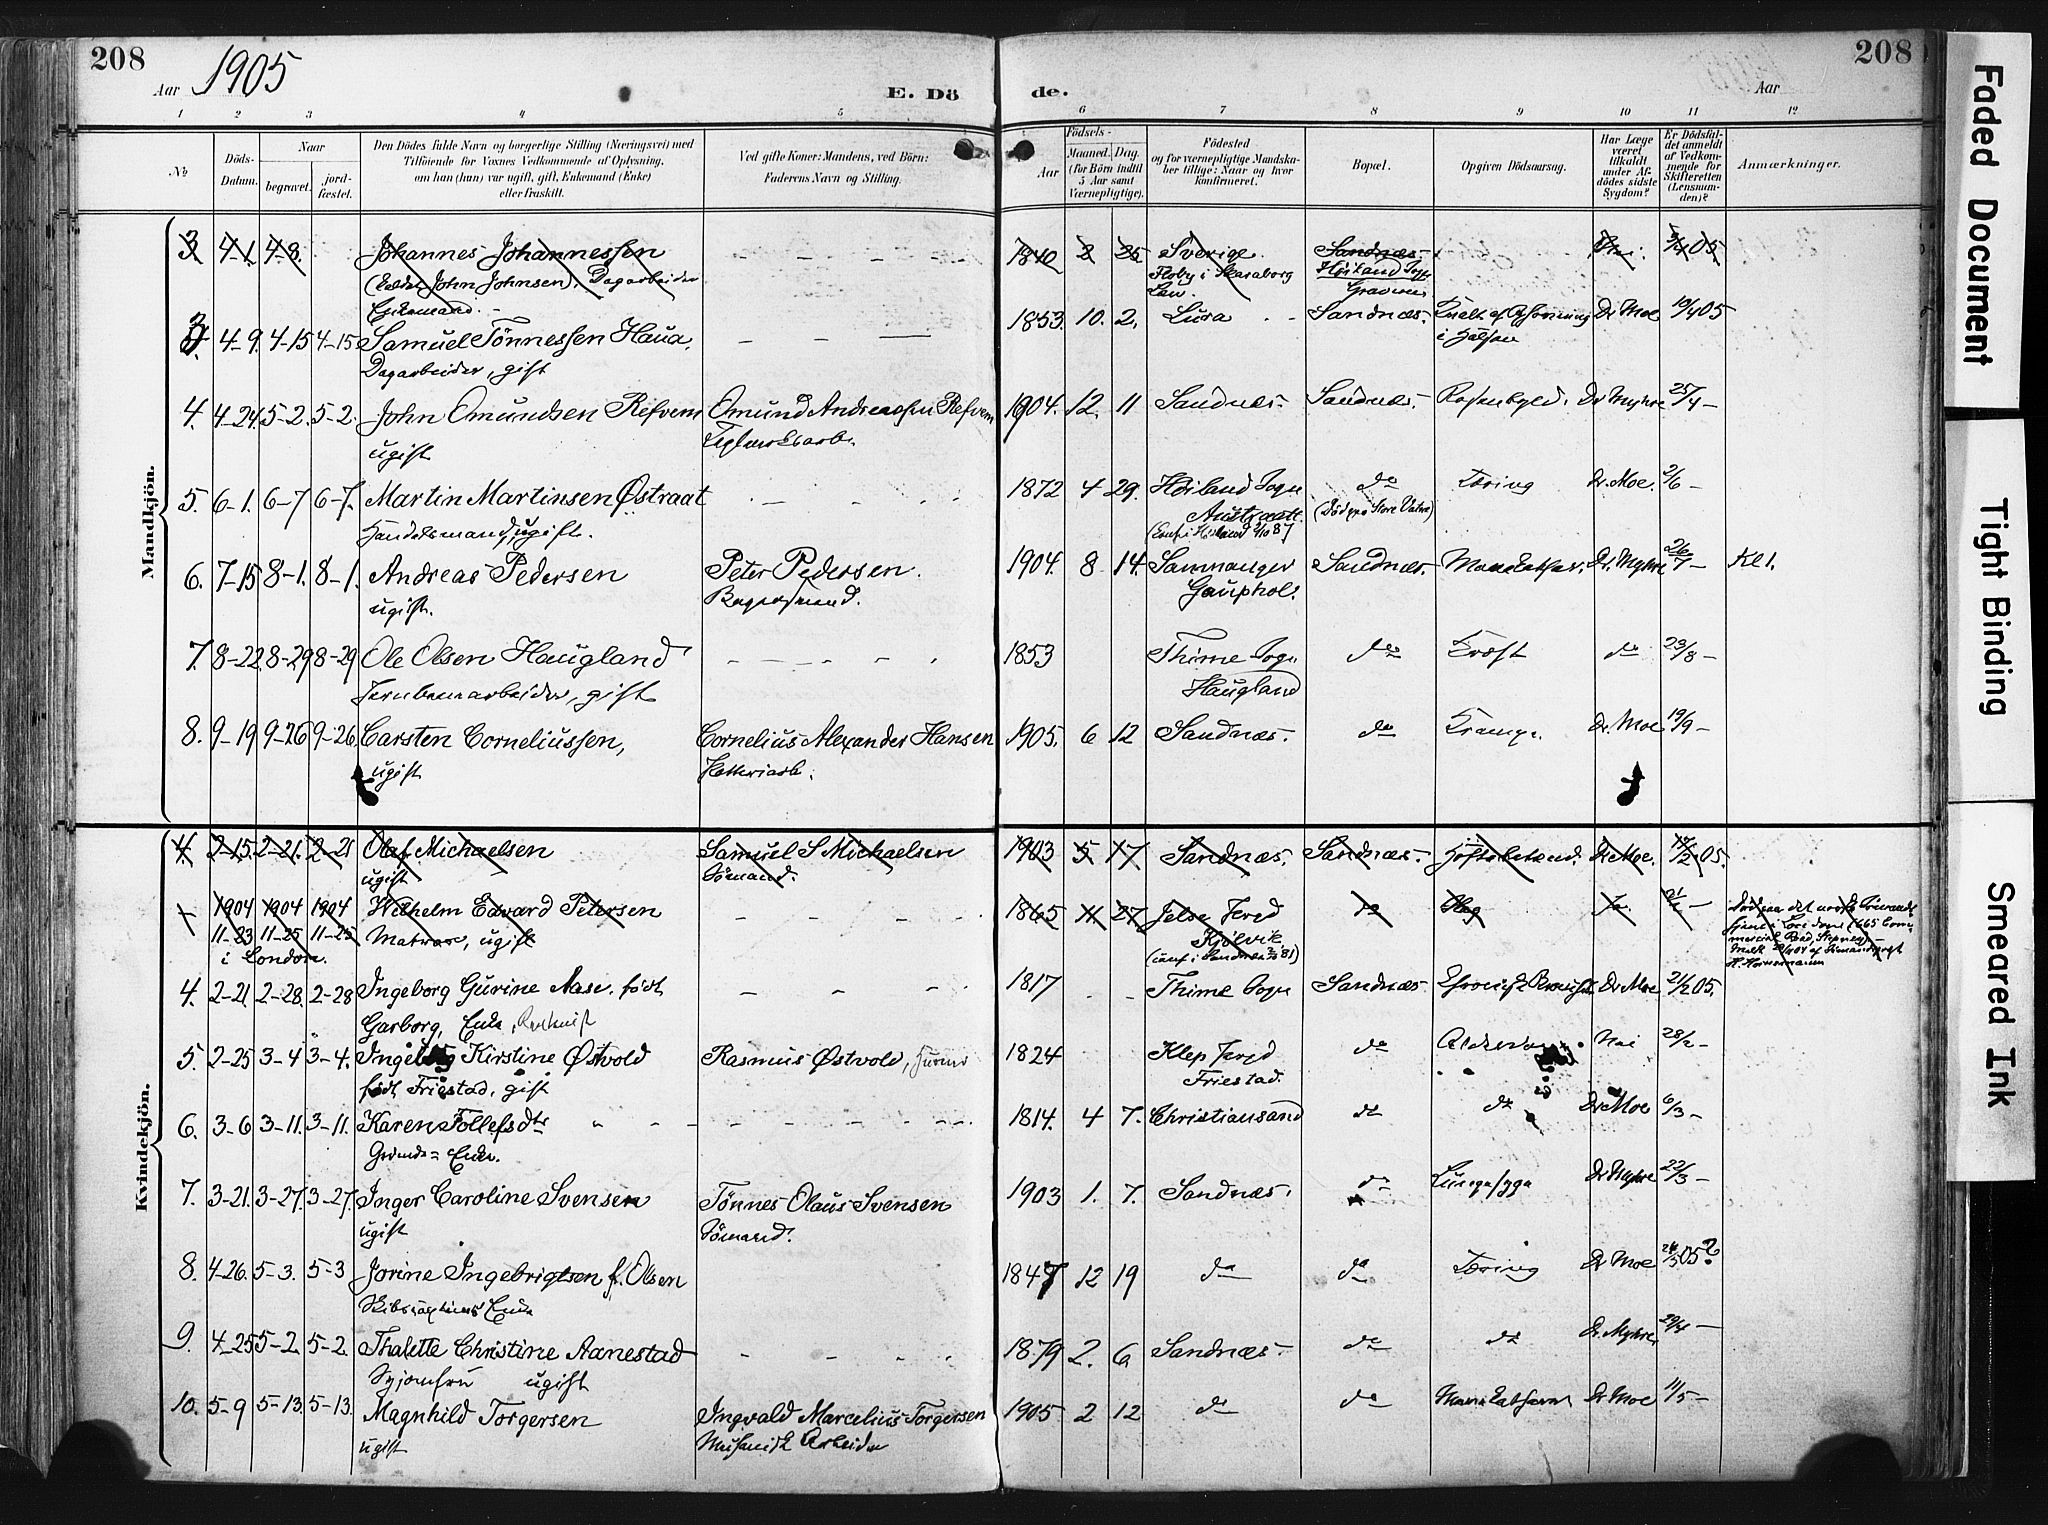 208
Aar 1905
E. Dö
de.
Aar
208
1 2 3 4 5 6 7 8 9 10 11 12
№
Döds-Datum.
Naar
begravet.
jord-fæstet.
Den Dödes fulde Navn og borgerlige Stilling (Næringsvei) med
Tilföiende for Voxnes Vedkommende af Oplysning,
om han (hun) var ugift, gift, Enkemand (Enke)
eller fraskilt.
Ved gifte Koner: Mandens, ved Börn:
Faderens Navn og Stilling.
Födsels-
Aar
Maaned. Dag.
(for Börn indtil
5 Aar samt
Værnepligtige).
Födested
og for værnepligtige Mandska-
ber tillige: Naar og hvor
konfirmeret.
Bopæl.
Opgiven Dödsaarsag.
Har Læge
været
tilkaldt
under Af-
dödes sidste
Sygdom?
Er Dödsfal-
det anmeldt
af Vedkom-
mende for
Skifteretten
(Lensman-
den)?
Anmærkninger.
Mandkjön.
3 4-1. 4-8. Johannes Johannessen 1840 2 25 Sverige. Sandnæs.
(kaldet John Johnsen), Dagarbeider Floby i Skaraborg Høiland Sogn
Enkemand. Læn. Graveren
3. 4-9. 4-15 4-15 Samuel Tönnessen Haua. 1853. 10. 2. Lura Sandnæs. Dr Moe 19/4 05
Dagarbeider, gift
4. 4-24. 5-2. 5-2. John Omundsen Refvem Omund Andreassen Refvem 1904. 12. 11 Sandnæs. Sandnæs. Dr Myhre 25/4 -
ugift
5. 6-1. 6-7 6-7. Martin Martinsen Østraat 1872 4 29. Høiland Sogn do Tæring Dr. Moe. 2/6 -
Handelsmand, ugift. Austraatt. (Död paa Store Vatne)
6. 7-15 8-1. 8-1. Andreas Pedersen Peter Pedersen. 1904. 8 14. Sammanger Sandnæs. Dr. Myhre 26/7 - Kl.
ugift. Bagersvend. Gauphol.
7. 8-22. 8-29 8-29 Ole Olsen Haugland 1853 Thime Sogn do Kræft do 23/8 -
Jernbanearbeider, gift Haugland
8. 9-19 9-26 9-26. Carsten Corneliussen, Cornelius Alexander Hansen 1905. 6 12 Sandnæs. do Krampe Dr. Moe 19/9 -
ugift
Kvindekjön.
4 2-15. 2-21. 2-21 Olaf Michaelsen Samuel S Michaelsen 1903 5 17 Sandnæs. Sandnæs. Dr Moe. 17/2 05.
ugift Sömand.
1904 1904 1904 Wilhelm Edvard Petersen 1865 11 27 Jelse Præd do Slag Ja
11-23 11-25 11-25 Matros, ugift Kjölvik
i London.
4. 2-21 2-28. 2-28 Ingeborg Gurine Aase. födt 1817 Thime Sogn Sandnæs Dr Moe 21/2 05.
Garborg, Enke
5. 2-25 3-4 3-4. Ingeborg Kirstine Østvold Rasmus Østvold, 1824 Klep Præd do Nei 28/2 -
födt Friestad, gift Friestad.
6. 3-6 3-11. 3-11. Karen Tollefsdtr 1814. 4 7. Christiansand do do Dr Moe 6/3 -
Enke.
7. 3-21. 3-27. 3-27. Inger Caroline Svensen Tönnes Olaus Svensen 1903 1. 7. Sandnæs. do Lungesyge Dr Myhre 22/3 -
ugift Sömand.
8. 4-26. 5-3. 5-3 Jorine Ingebrigtsen f. Olsen 1847 12 19 do do Tæring Dr Moe 05?
Enke
9. 4-25 5-2 5-2. Thalette Christine Aanestad 1879 2. 6 Sandnæs. do do Dr. Myhre 29/4 -
Syjomfru ugift
10. 5-9 5-13. 5-13. Magnhild Torgersen Ingvald Marcelius Torgersen 1905 2 12 do do Dr Moe 11/5 -
ugift Mekanisk Arbeider
Faded Document
Tight Binding
Smeared Ink